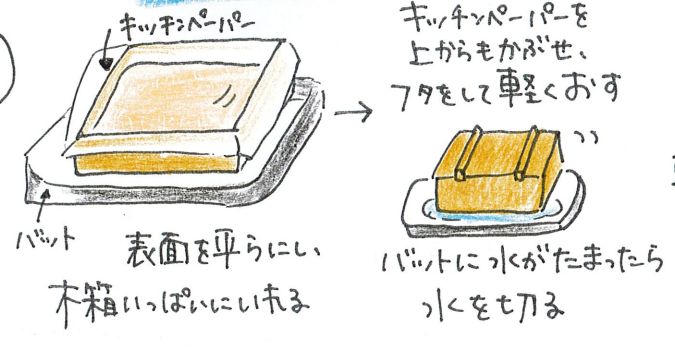 キッチンペーパー
バット
表面を平らにし
木箱いっぱいにいれる
キッチンペーパーを
上からもかぶせ、
フタをして軽くおす
バットに水がたまったら
水を切る